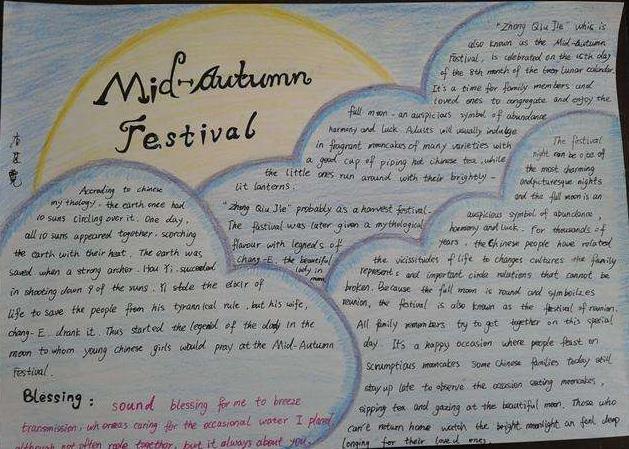 Mid-Autumn
Festival
"Zhong Qiu Jie" whic is
also known as the Mid-Autumn
Festival, is celebrated on the 15th day
of the 8th month of the lunar calendar.
It's a time for family members and
loved ones to congregate and enjoy the
full moon - an auspicious symbol of abundance
harmony and luck. Adults will usually indulge
in fragrant mooncakes of many varieties with
a good cap of piping hot chinese tea, while
the little ones run around with their brightly-
lit lanterns.
"Zhong Qiu Jie" probably as a harvest festival.
The fastival was later given a mythological
flavour with legneds of
Chang-E. the beautiful
lady in
moon
According to chinese
my thology. the earth once had
10 suns circling over it. One day,
all 10 suns appeared together. scorching
the earth with their heat. The earth was
saved when a strong archer. Hou Yi. succeeded
in shooting down 9 of the suns. Yi stole the elixir of
life to save the people from his tyrannical rule, but his wife,
chang-E. drank it. Thus started the legend of the lady in the
moon to whom young chinese girls would pray at the Mid-Autumn
Festival.
The festival
night can be one of
the most charming
and picturesque nights
and the full moon is an
auspicious symbol of abundance,
harmony and luck. For thousands of
years, the Chinese people have related
the vicissitudes of life to changes cultures the family
represents and important circle relations that cannot be
broken. Because the full moon is round and symbolizes
reunion, the festival is also known as the festival of reunion.
All family members try to get together on this special
day. It's a happy occasion where people feast on
scrumptious mooncakes some Chinese families today still
stay up late to observe the occasion eating mooncakes,
sipping tea and gazing at the beautiful moon. Those who
can't return home watch the bright moonlight an feel deep
longing for their loved ones.
Blessing: sound blessing for me to breeze
transmission, whereas caring for the occasional water I pland
although not often role together, but it always about you.